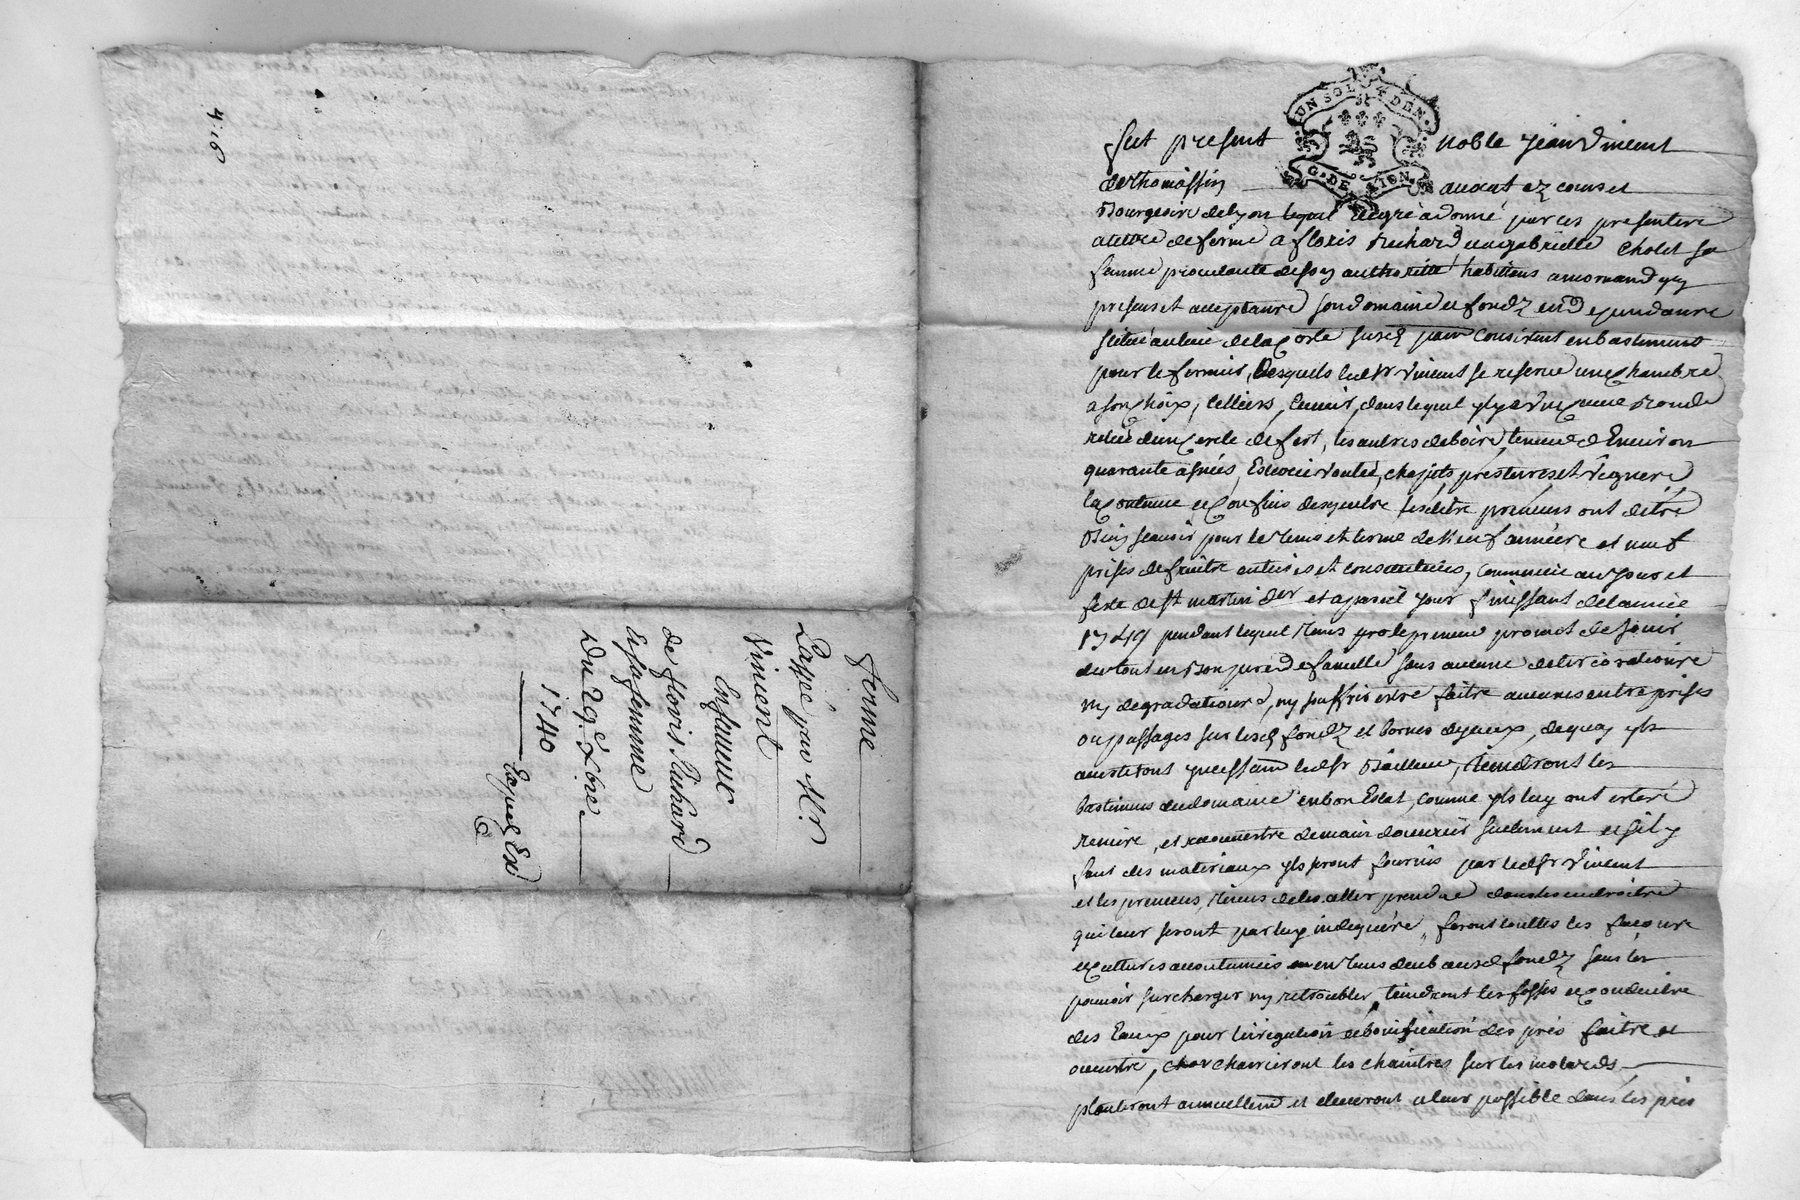 4:6
ferme
Passé par Mr
Vincent
En faveur
de floris Richard
Et sa femme
Du 29e Xbre
1740
Expel Exd
UN SOL 4 DEN
G. DE LION
fut present noble Jean Vincent
de thomassin avocat ez cours et
Bourgeois de Lyon lequel de gré a donné par ces presentes
a titre de ferme a floris Richard et a gabrielle cholet sa
femme procedante de son authorité habittans a mornand icy
presens et acceptants son domaine et fondz en dependants
scitué au lieu de la Coste susd consistant en bastiments
pour le fermier, Desquels led Sr Vincent se reserve une chambre
a son choix, cellier, Cuvier, dans lequel yl y a une ronde
reliée d'un cercle de fert, les autres de bois, tenue d'Environ
quarante asnées, Escurie voutée, chapits, prés terres et vignes
la Contenue et Confins desquels lesdits preneurs ont dit
Bien scavoir pour le tems et terme de neuf années et neuf
prises de fruits entieres et consecutives, commencé au jour et
feste de St martin der et a pareil jour finissant de l'année
1749 pendant lequel tems promet de jouir
du tout en Bon pere de famille sans aucune deterioration
ny degradations, ny souffrir estre faitte aucunes entreprises
ou passages sur lesd fondz et bornes d'yceux, de quoy yls
avertiront led Sr Bailleur, tiendront les
bastimens du domaine en bon Estat, comme yls luy ont esté
Remis, et de main d'ouvrier seulement et s'il y
faut des materiaux yls seront fournis par led Sr Vincent
et les preneurs tenus de les aller prendre dans les endroits
qui leur seront par luy indiqués, feront touttes les facons
et cultures accoutumées en tems deub ausd fondz sans les
pouvoir surcharger ny retroubler, tiendront les fosses et conduits
des Eaux pour l'irrigation et bonification des prés faitte et
ouverts, charrieront les chaintres sur les
planteront annuellement et eleveront a leur possible dans les prés